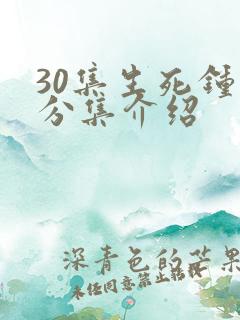 30集生死钟
分集介绍
深青色的芒果
未经同意禁止转载